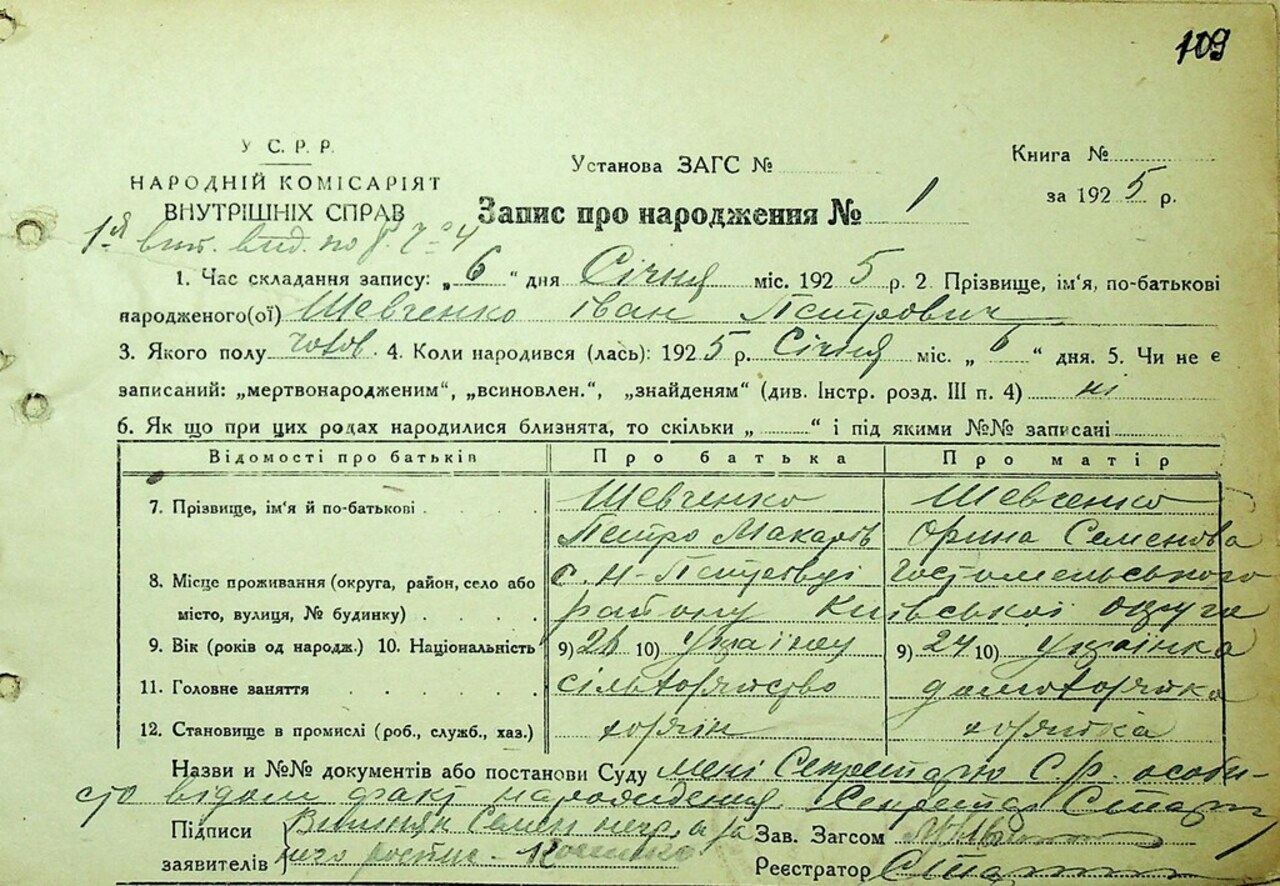 109
У С. Р. Р.
НАРОДНІЙ КОМІСАРІЯТ
ВНУТРІШНІХ СПРАВ
Установа ЗАГС №
Книга №
за 1925 р.
Запис про народження № 1
1. Час складання запису: „6“ дня Січня міс. 1925 р. 2. Прізвище, ім'я, по-батькові
народженого(ої) Шевченко Іван Петрович
3. Якого полу чолов. 4. Коли народився (лась): 1925 р. Січня міс. „6“ дня. 5. Чи не є
записаний: „мертвонародженим“, „всиновлен.“, „знайденям“ (див. Інстр. розд. III п. 4) ні
6. Як що при цих родах народилися близнята, то скільки „ “ і під якими №№ записані
Відомості про батьків Про батька Про матір
7. Прізвище, ім'я й по-батькові Шевченко Шевченко
Петро Макарів Орина Семенова
8. Місце проживання (округа, район, село або с. Н-Петрівці Гостомельського
місто, вулиця, № будинку) району Київської округи
9. Вік (років од народж.) 10. Національність 9) 26 10) Українец 9) 24 10) Українка
11. Головне заняття сільхозяйство домохозяйка
12. Становище в промислі (роб., служб., хаз.) хозяїн хозяйка
Назви и №№ документів або постанови Суду мені Секретарю С.Р. особи-
сто відом факт народження Секретар
Підписи Семен негр. а за Зав. Загсом
заявителів него роспис- Реєстратор